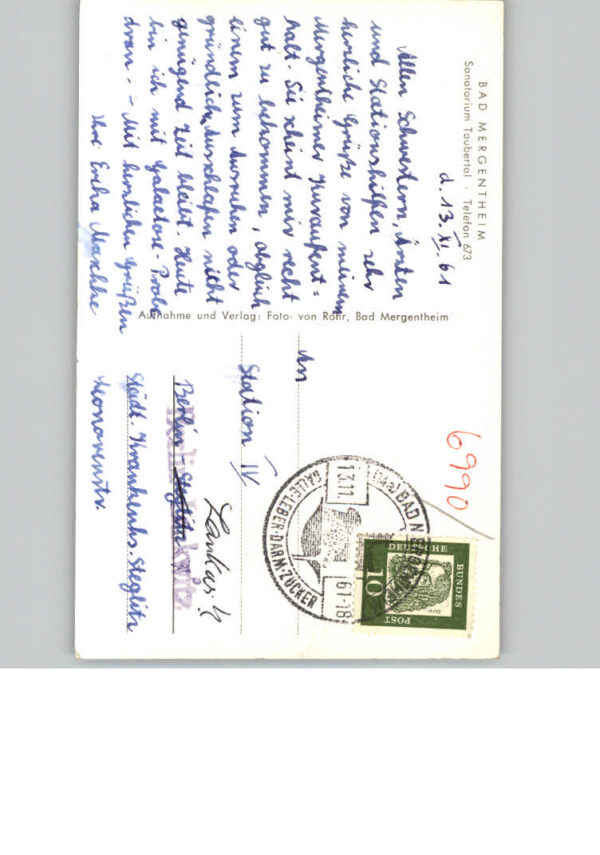 BAD MERGENTHEIM
Sanatorium Taubertal · Telefon 673
d. 13. XI. 61
Allen Schwestern, Ärzten
und Stationshilfen sehr
herzliche Grüße von meinem
Mergentheimer Kuraufent=
halt. Sie scheint mir recht
gut zu bekommen, obgleich
einem zum Ausruhen oder
gründlich Ausschlafen nicht
genügend Zeit bleibt. Heute
bin ich mit Galactose-Probe
dran. – Mit herzlichen Grüßen
Ihre Erika
Aufnahme und Verlag: Foto- von Rohr, Bad Mergentheim
An
Station IV
Berlin-Steglitz
Lankwitz
Städt. Krankenhs. Steglitz
Leonorenstr.
6990
BAD MERGENTHEIM
13.11.61-18
GALLE·LEBER·DARM·ZUCKER
DEUTSCHE
BUNDES
POST
10